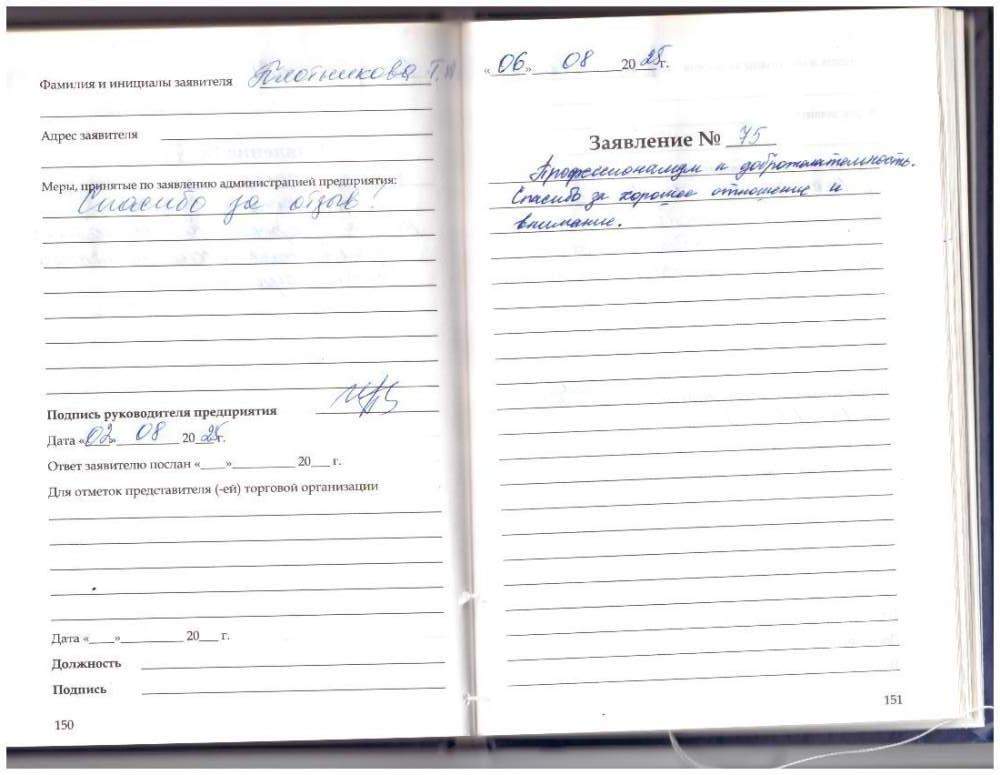 Фамилия и инициалы заявителя Плотникова Т.
Адрес заявителя
Меры, принятые по заявлению администрацией предприятия:
Спасибо за отзыв!
Подпись руководителя предприятия
Дата «02» 08 2025г.
Ответ заявителю послан «____»__________ 20___ г.
Для отметок представителя (-ей) торговой организации
Дата «____»__________ 20___ г.
Должность
Подпись
150
«06» 08 2025г.
Заявление № 75
Профессионализм и доброжелательность.
Спасибо за хорошее отношение и
внимание.
151